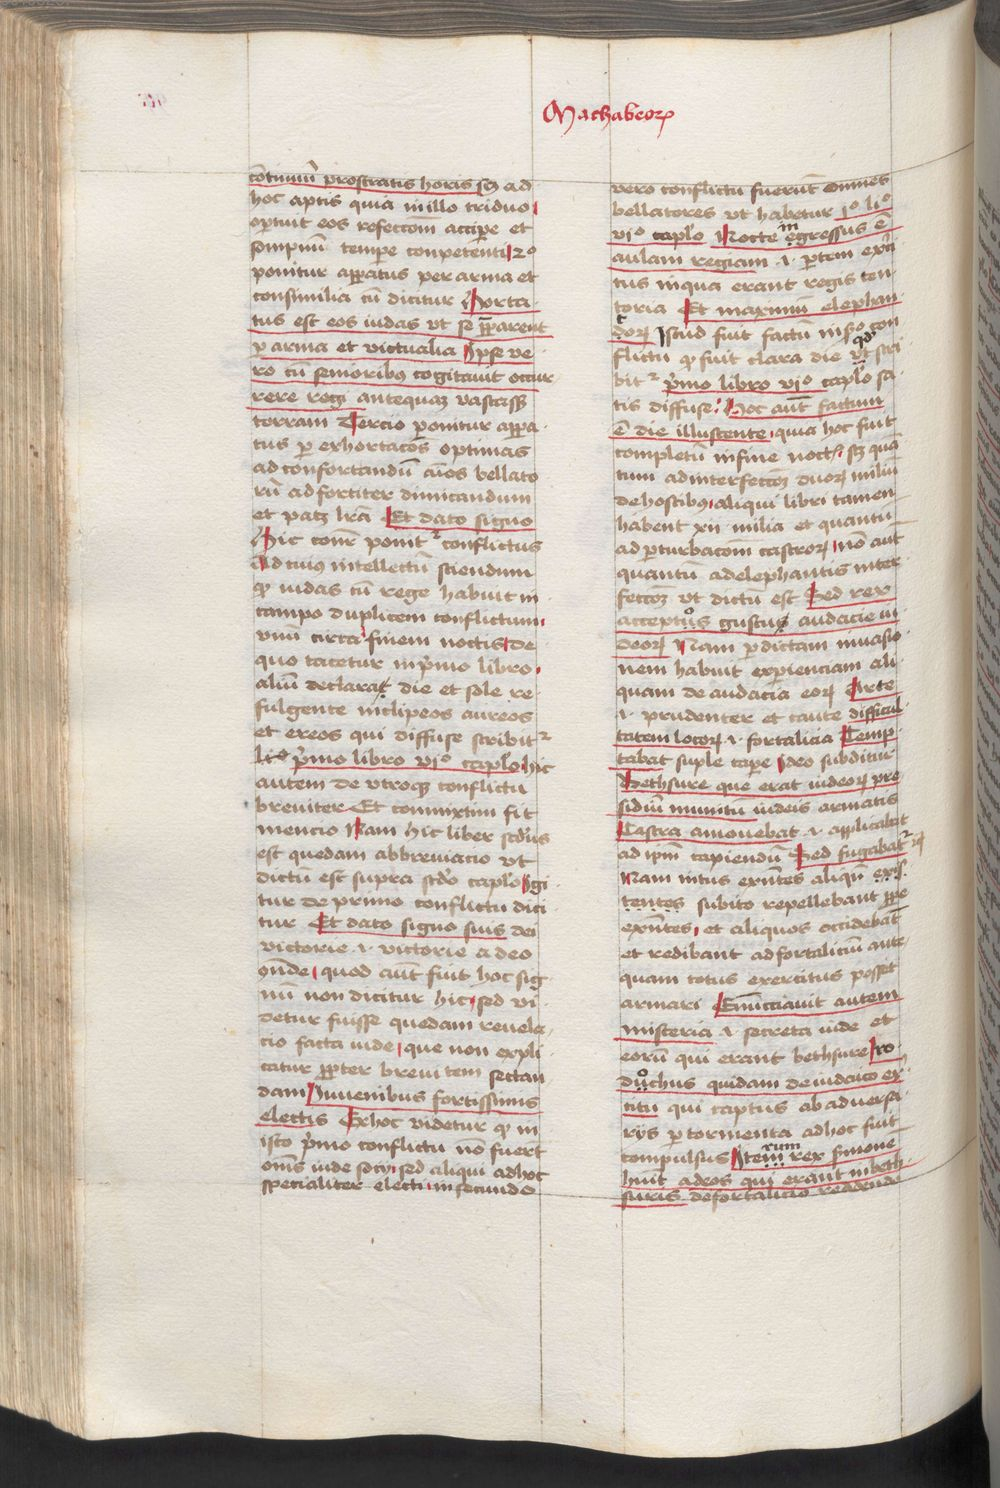 Machabeoꝝ
cōtinuū prostratis horis scꝫ ad
hoc aptis quia in illo triduo
oportuit eos refectiōm accipe et
sompnū tempe conpetenti 2o
ponitur appatus per arma et
consimilia cū dicitur Horta
tus est eos iudas vt se ppararent
p arma et victualia Ipse ve
ro cū senioribus cogitauit occur
rere regi antequaꝫ vastasset
terram Tercio ponitur appa
tus p exhortacōs optimas
ad confortandū aīos bellato
rū ad fortiter dimicandum
et patꝫ lrā Et dato signo
Hic conr̄ ponitr conflictus
Ad cuius intellectū sciendum
qͥ iudas cū rege habuit in
campo duplicem conflictum
vnū circa finem noctis de
quo tacetur in pͥmo libro
aliū declarat die et sole re
fulgente in clipeos aureos
et ereos qui diffuse scribitr
lio pͥmo libro vio caplo hic
autem de vtroqꝫ conflictu
breuiter Et conmixtim fit
mencio Nam hic liber scdus
est quedam abbreuiacio vt
dictū est supra scdo caplo Igi
tur de primo conflictu dici
tur Et dato signo suis dei
victorie .i. victorie a deo
onde quod aūt fuit hoc sig
nū non dicitur hic sed vi
detur fuisse quedam reuela
cio facta iude que non expli
catur ppter breuitem sectan
dam Iuuenibus fortissimis
electis Ex hoc videtur qͥ in
isto pͥmo conflictu nō fuert
oms iude socij sed aliqui ad hoc
specialiter electi in secundo
vero conflictu fuerūt omnes
bellatores vt habetur io lio
vio caplo Nocte in egressus ē
aulam regiam .i. ptem exci
tus in qua erant regis ten
toria Et maximū elephan
doꝝ Istud fuit factū in pͥo con
flictu qͥ fuit clara die vt qd scri
bitr pͥmo libro vio caplo sa
tis diffuse Hoc aūt factum
ē die illustente quia hoc fuit
completū in fine noctͥ sꝫ quā
tum ad interfectōꝫ duoꝝ miliū
de hostibus aliqui libri tamen
habent xii milia et quantū
ad pturbacōm castroꝝ nō aūt
quantū ad elephantis inter
fectōꝫ vt dictū est Sed rex
accepto gustus audacie iu
deoꝝ Nam p dictam inuasio
nem habuit expienciam ali
quam de audacia eoꝝ Arte
.i. prudenter et caute difficul
tatem locoꝝ .i. fortalicia Temp
tabat suple cape ideo subditur
Bethsure que erat iudeoꝝ pre
sidiū munitū iudeis armatis
Castra amouebat .i. applicabat
ad ipm capiendū Sed fugabatr
Nam intus exntes aliqn̄ exis
tentes subito repellebant ppe
exntes et aliquos occidebāt
et redibant ad fortaliciū ante
quam totus exercitus posset
armari Enūcciauit autem
misteria .i. secreta iude et
eorū qui erant bethsure ro
dochus quidam de iudaico ex
citu qui captus ab aduersa
rijs p tormenta ad hoc fuit
compulsus Item rum rex smonē
huīt ad eos qui erant in beth
suris de fortalicio reddendo